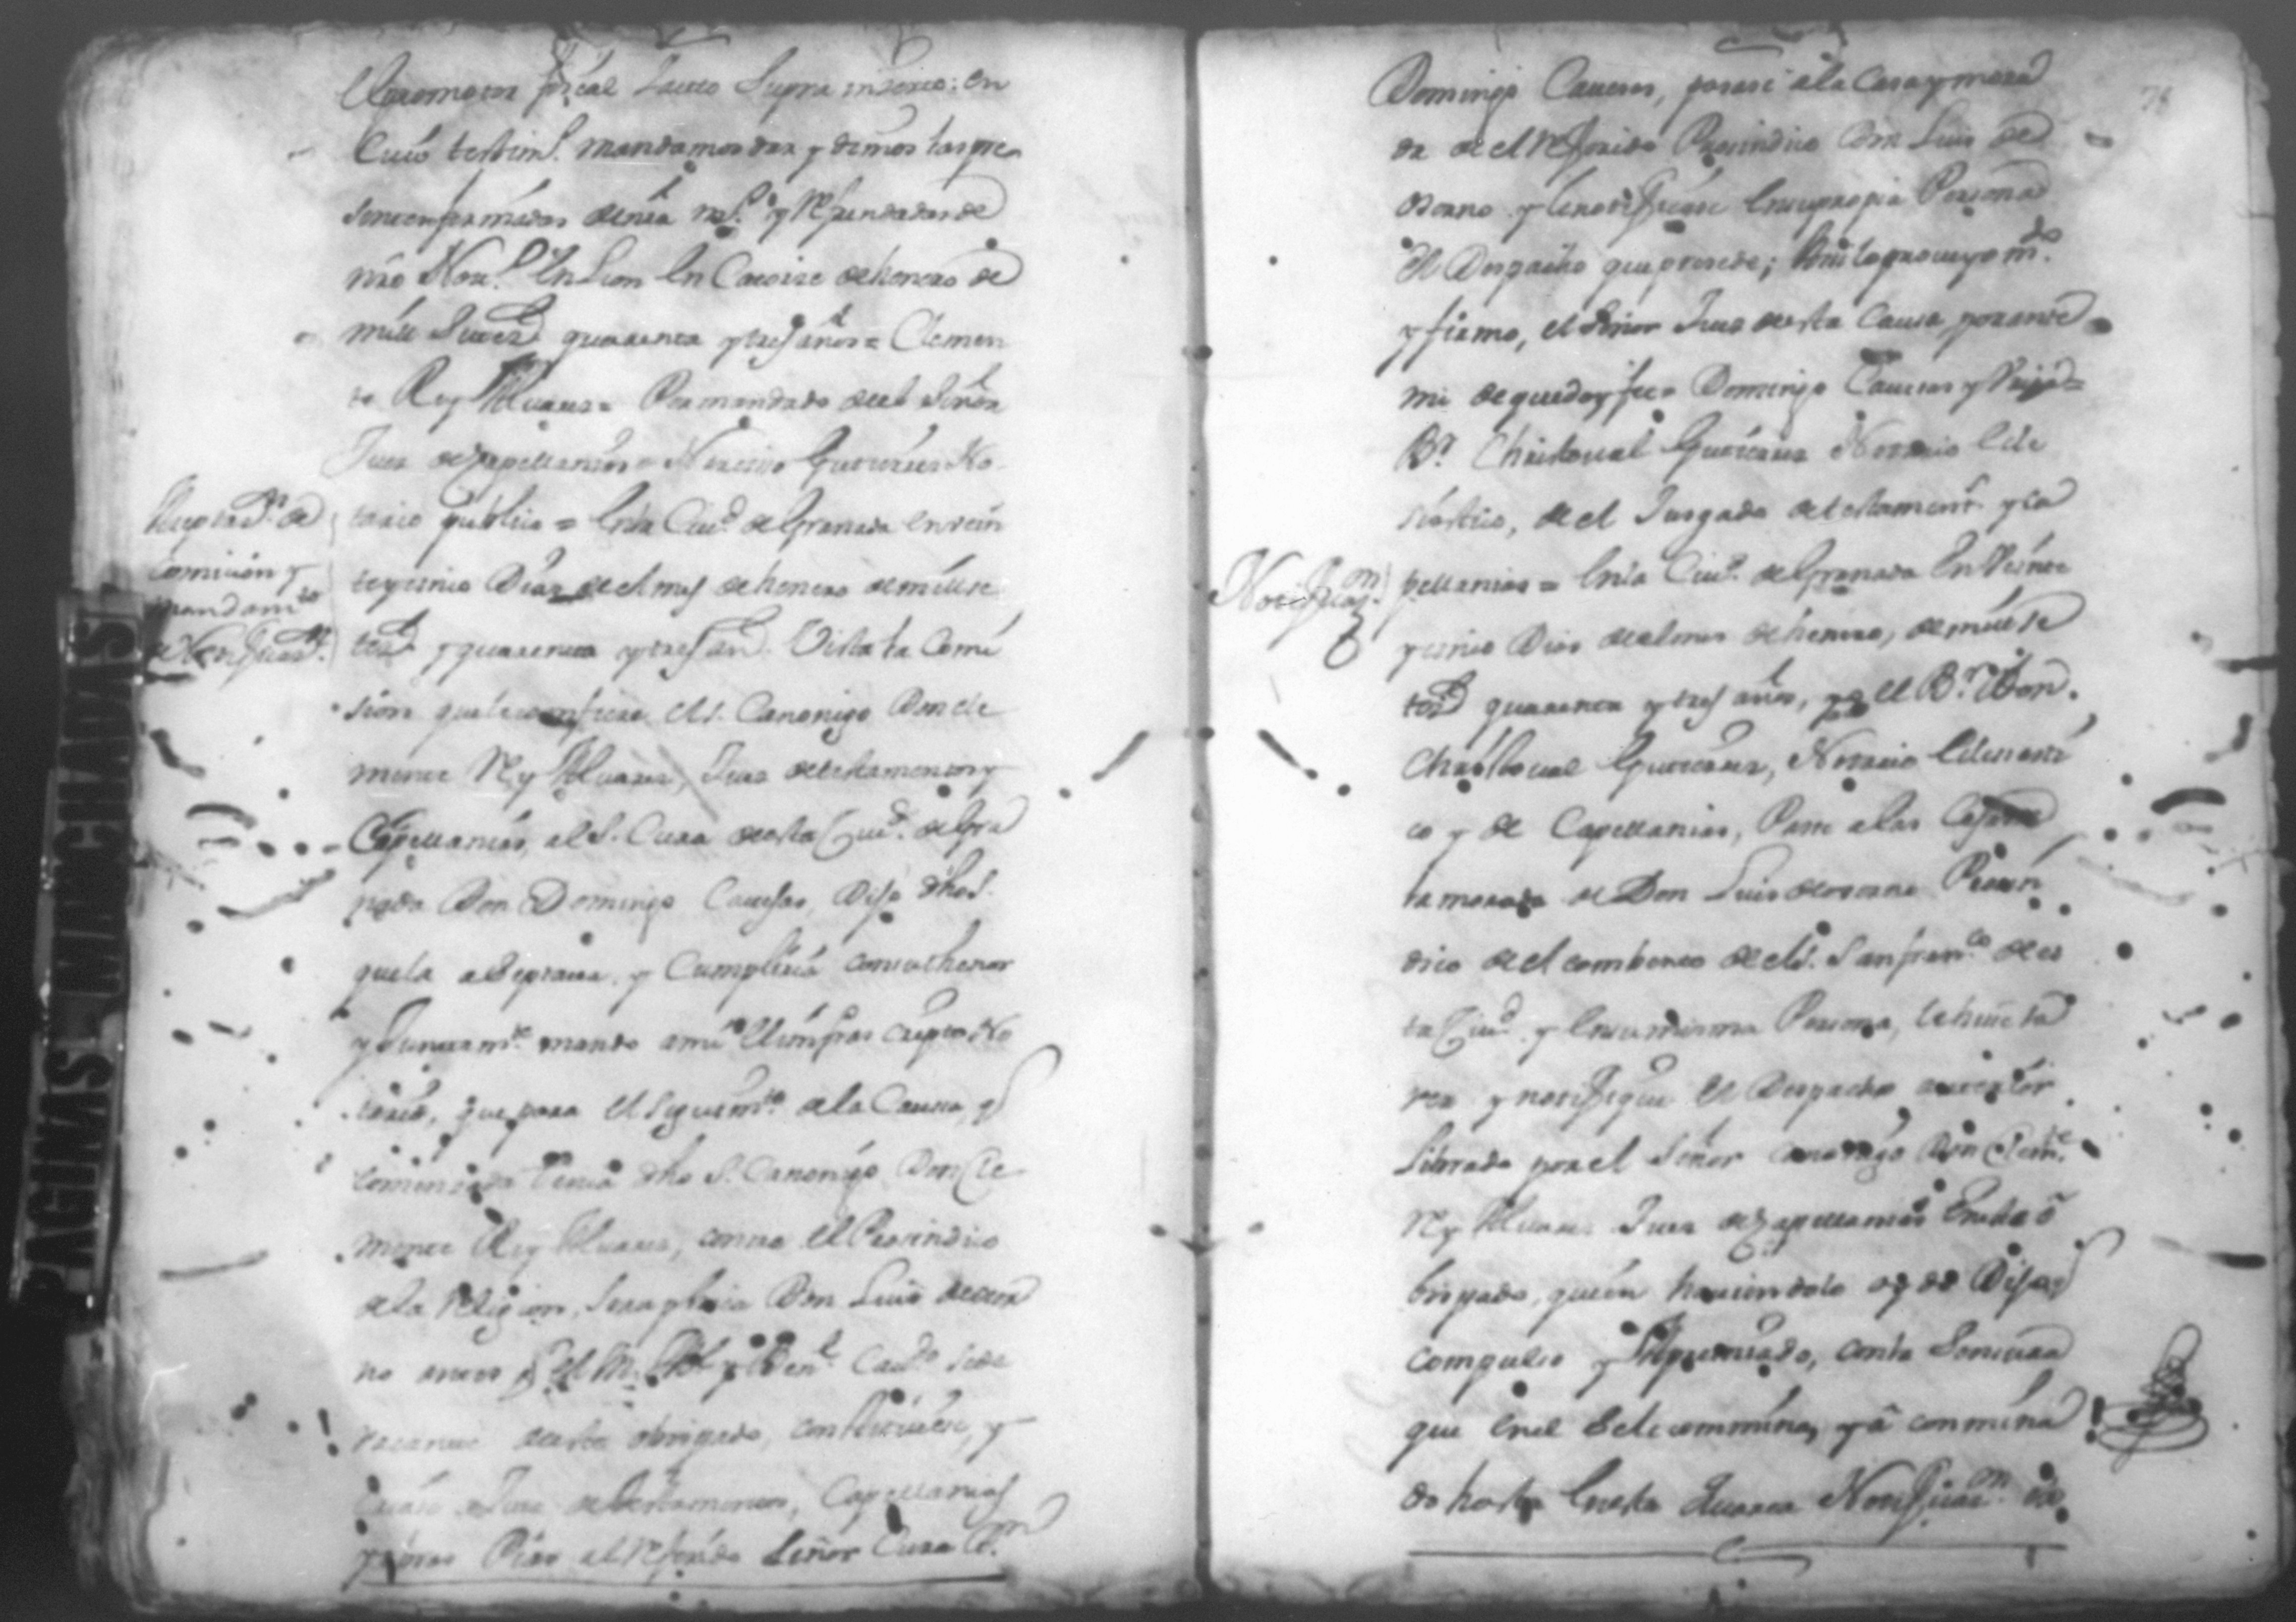 El promotor fiscal Lacto Supra inserto: en
Cuio testim.º mandamos dar y damos las pre
sentes firmadas de nra mº. y Refrendadas de
nro Nott.º En Leon En Catorze de henero de
mill Settec.s quarenta y tres años = Clemen
te Rey Alvares = Por mandado de el Señor
Juez de Capellanias = Narciso Gutierres No
tario publico = En la Ciu.d de Granada en vein
te y sinco Dias de el mes de henero de mill se
tec.s y quarenta y tres an.s Vista la Comi
sion que le confiere el S. Canonigo Don Cle
mente Rey Alvares, Juez de testamentos y
Capellanias, al S. Cura de esta Ciu.d de Gra
nada Don Domingo Cavesas, Dijo dho S.
que la aceptava y Cumplira como thenor
y Juntam.te mando a mi el infras cripto No
tario, que para el Seguim.to de la Causa, q
Comensada tenia dho S. Canonigo Don Cle
mente Rey Alvares, contra el Prosindico
de la Religion Seraphica Don Luis de osor
no antes q el M. Ble y Ven.e Cav.do sede
vacante de este obispado, constituiese, y
Juez de testamentos, Capellanias
y obras Pias al Referido Señor Cura D.n
Aceptas.n de
Comision y
mandam.to
de Notificas.n
Domingo Cavesas, pasase a la Casa y mora
da de el Referido Prosindico Don Luis de
osorno y le notificase en su propia Persona
el Despacho que precede; Assi lo proveyo m.do
y firmo, el Señor Juez de esta Causa, por ante
mi de que doy fee = Domingo Cavesas y Urizar =
B.r Christoval Gutierres Notario Ecle
siastico, de el Jusgado de testament.s y Ca
pellanias = En la Ciu.d de Granada En Veinte
y sinco Dias de el mes de henero, de mill se
tec.s quarenta y tres años, yo el B.r Don
Christoval Gutierres, Notario Eclesiasti
co y de Capellanias, Pase a las Casas de
la morada de Don Luis de osorno Prosin
dico de el combento de el S. San fran.co de es
ta Ciu.d y En su misma Persona, le hise sa
ver y notifique el Despacho anterior
Librado por el Señor Canonigo Don Clem.te
Rey Alvares Juez de Capellanias En este o
bispado, quien haviendolo oydo Dijo q
compulso y Apremiado, con la Sensura
que en el Se le commina, y â conmina
do hasta En esta Quarta Notificas.n de
Notificas.n
78
PAGINAS MANCHADAS